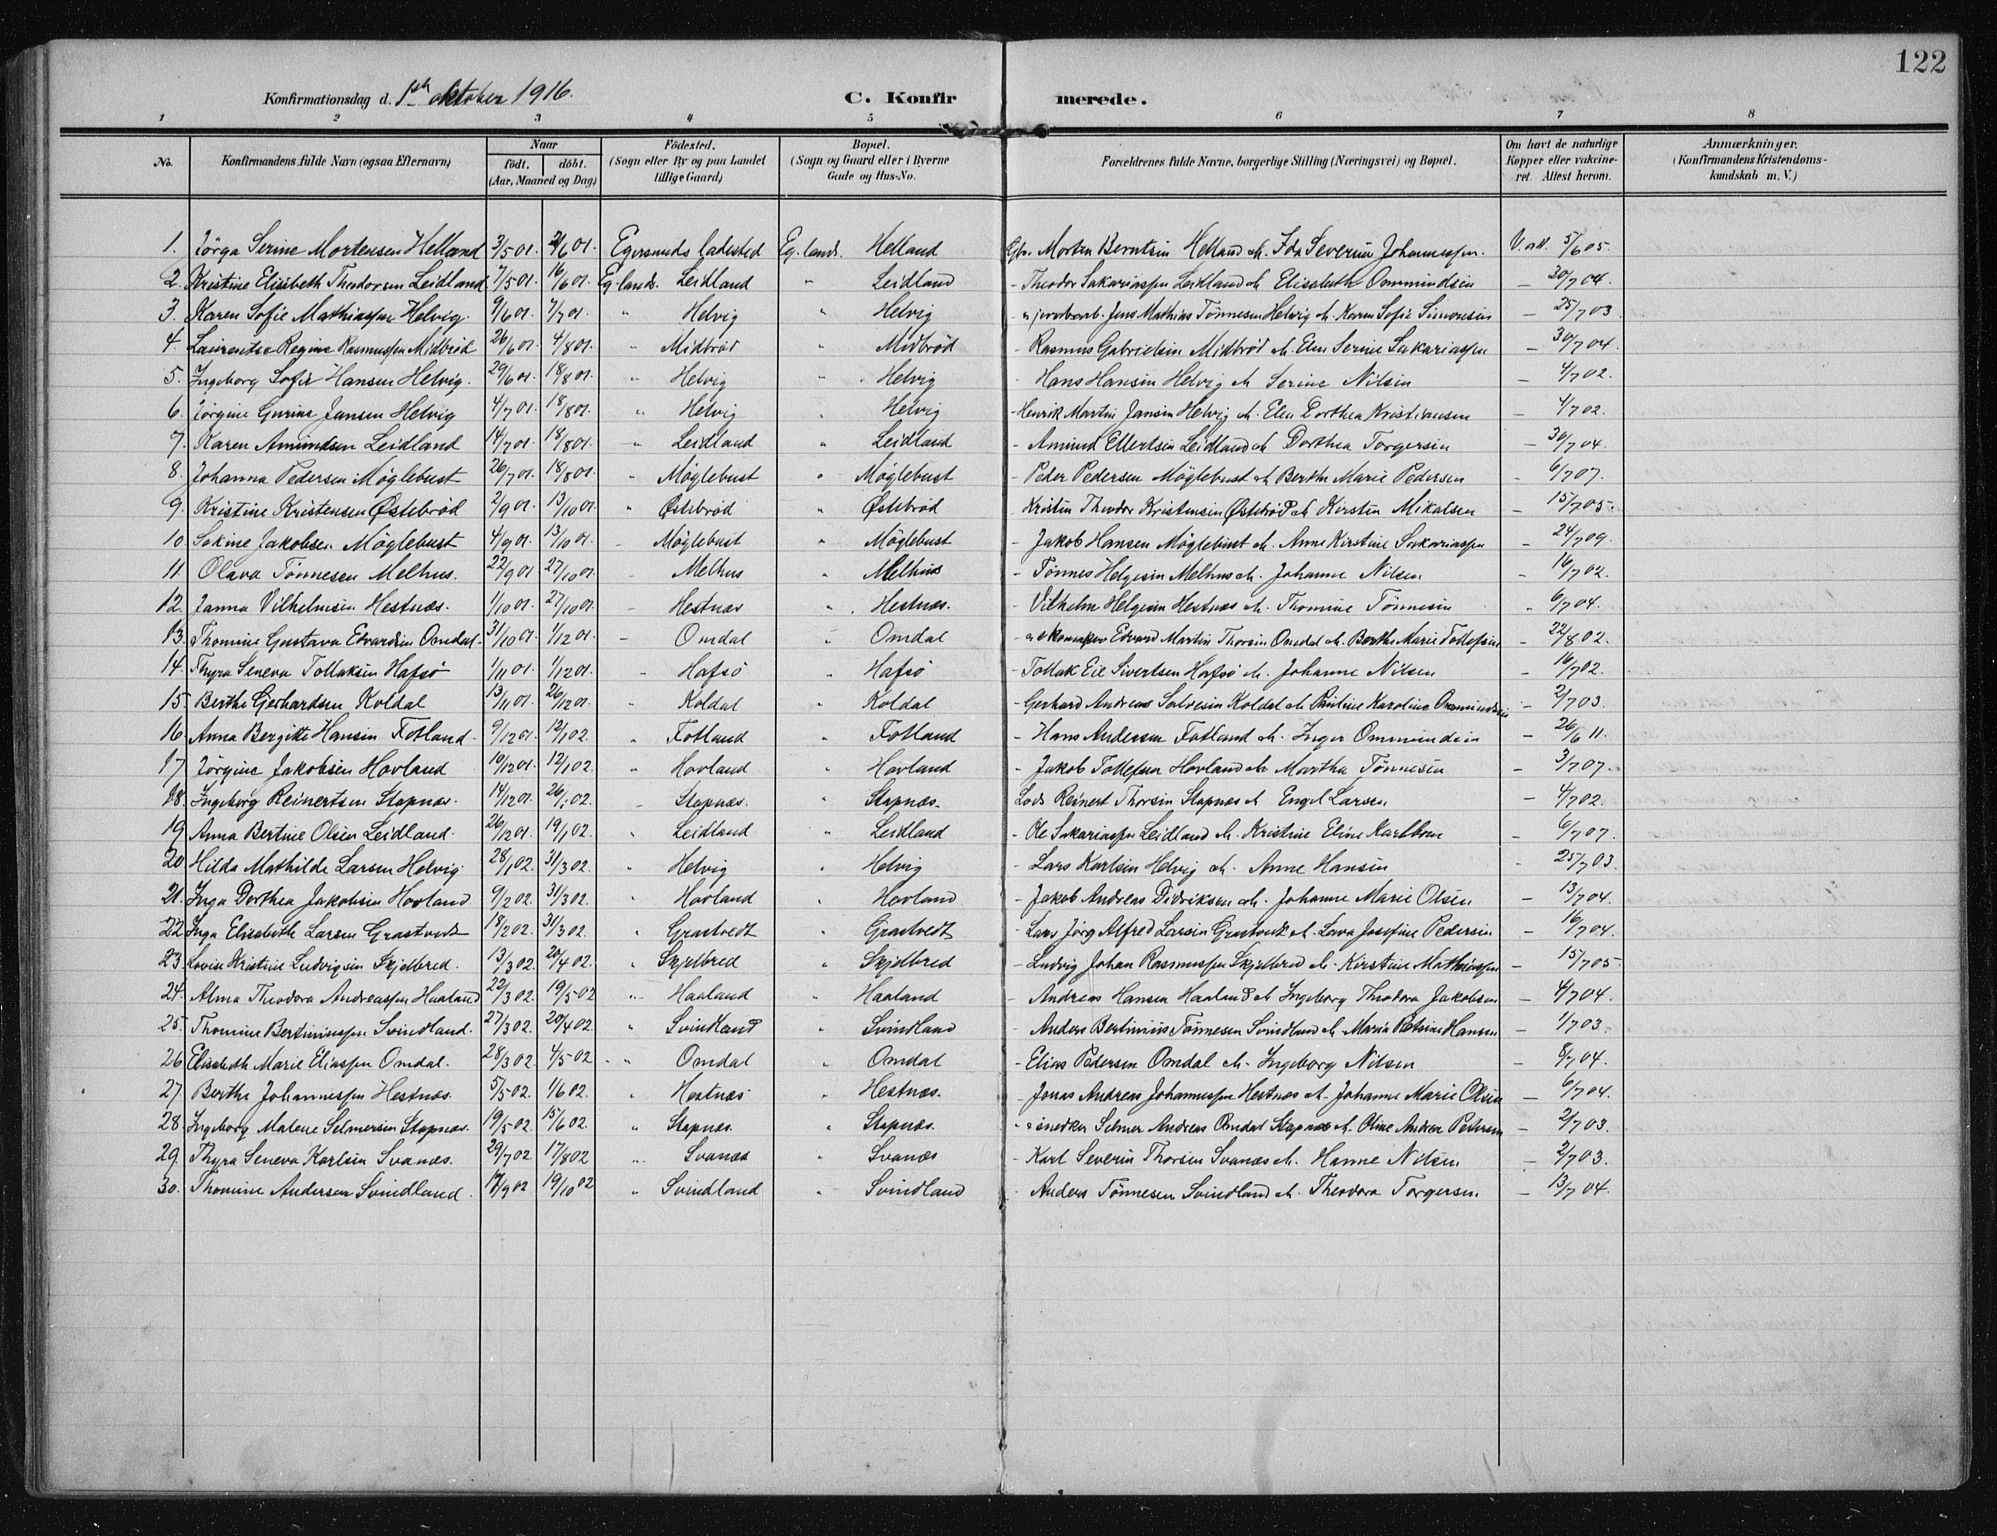 122
Konfirmationsdag d. 1ste oktober 1916. C. Konfirmerede.
1 2 3 4 5 6 7 8
No. Konfirmandens fulde Navn (ogsaa Efternavn) Naar födt. döbt. (Aar, Maaned og Dag) Födested. (Sogn eller By og paa Landet tillige Gaard) Bopæl. (Sogn og Gaard eller i Byerne Gade og Hus-No. Forældrenes fulde Navne, borgerlige Stilling (Næringsvei) og Bopæl. Om havt de naturlige Kopper eller vaccineret. Attest herom. Anmærkninger. (Konfirmandens Kristendomskundskab m. V.)
1. Jörga Serine Mortensen Helland 3/5 01. 2/6 01. Egersunds ladested Eg. lands. Helland Gbr. Morten Berntsen Helland & Ida Severine Johannessen. V. att. 5/6 05.
2. Kristine Elisabeth Theodorsen Leidland 7/5 01. 16/6 01. Eg. lands. Leidland " Leidland - Theodor Sakariassen Leidland & Elisabeth Ommundsen - 30/7 04.
3. Karen Sofie Mathiassen Helvig. 9/6 01. 7/7 01. " Helvig " Helvig - " jernbarb. Jens Mathias Tönnesen Helvig & Karen Sofie Simonsen - 25/7 03
4. Laurentse Regine Rasmussen Midbröd 26/6 01. 4/8 01. " Midbröd " Midbröd - Rasmus Gabrielsen Midbröd & Elen Serine Sakariassen - 30/7 04.
5. Ingeborg Sofie Hansen Helvig. 29/6 01. 18/8 01. " Helvig " Helvig - Hans Hansen Helvig & Serine Nilsen - 4/7 02.
6. Jörgine Gurine Jansen Helvig 4/7 01. 18/8 01. " Helvig " Helvig - Henrik Martin Jansen Helvig & Elen Dorthea Kristiansen - 4/7 02.
7. Karen Amundsen Leidland 14/7 01. 18/8 01. - Leidland " Leidland - Amund Ellertsen Leidland & Dorthea Torgersen - 30/7 04.
8. Johanna Pedersen Möglebust 26/7 01. 18/8 01. - Möglebust " Möglebust - Peder Pedersen Möglebust & Berthe Marie Pedersen - 6/7 07.
9. Kristine Kristensen Östebröd 2/9 01. 13/10 01. " Östebröd " Östebröd - Kristen Theodor Kristensen Östebröd & Kirsten Mikalsen - 15/7 05.
10. Sakine Jakobsen Möglebust 4/9 01. 13/10 01. - Möglebust " Möglebust - Jakob Hansen Möglebust & Anne Kirstine Sakariassen - 24/7 09.
11. Olava Tönnesen Melhus. 22/9 01. 27/10 01. - Melhus " Melhus - Tönnes Helgesen Melhus & Johanne Nilsen - 16/7 02.
12. Janna Vilhelmsen Hestnæs. 1/10 01. 27/10 01. - Hestnæs " Hestnæs. - Vilhelm Helgesen Hestnæs & Thomine Tönnesen " 6/7 04.
13. Thomine Gustava Edvardsen Omdal. 31/10 01. 1/12 01. - Omdal " Omdal - " skomaker Edvard Martin Thorsen Omdal & Berthe Marie Tollefsen - 22/8 02.
14. Thyra Seneva Tollaksen Hafsö 1/11 01. 1/12 01. " Hafsö " Hafsö - Tollak Eie Sivertsen Hafsö & Johanne Nilsen - 16/7 02.
15. Berthe Gerhardsen Koldal 13/11 01. 26/12 01. " Koldal " Koldal - Gerhard Andreas Salvesen Koldal & Pauline Karoline Ommundsen - 2/7 03.
16. Anna Bergitte Hansen Fotland. 9/12 01. 12/1 02. " Fotland " Fotland - Hans Andersen Fotland & Inger Ommundsen - 26/6 11.
17. Jörgine Jakobsen Hovland 10/12 01. 12/1 02. " Hovland " Hovland - Jakob Tollefsen Hovland & Martha Tönnesen - 3/7 07.
18. Ingeborg Reinertsen Stapnæs. 14/12 01. 26/1 02. - Stapnæs. " Stapnæs. Lods Reinert Thorsen Stapnæs & Engel Larsen - 4/7 02.
19. Anna Bertine Olsen Leidland. 26/12 01. 19/1 02. " Leidland " Leidland - Ole Sakariassen Leidland & Kristine Eline Karlsen - 6/7 07.
20. Hilda Mathilde Larsen Helvig. 28/1 02. 31/3 02. " Helvig " Helvig - Lars Karlsen Helvig & Anne Hansen " 25/7 03
21. Inga Dorthea Jakobsen Hovland 9/2 02. 31/3 02. " Hovland " Hovland - Jakob Andreas Didriksen & Johanne Marie Olsen - 13/7 04.
22. Inga Elisabeth Larsen Grastvedt 18/2 02. 31/3 02. " Grastvedt " Grastvedt - Lars Jörg Alfred Larsen Grastvedt & Lava Josefine Pedersen - 16/7 04.
23. Lovise Kristine Ludvigsen Skjelbred. 13/3 02. 20/4 02. " Skjelbred " Skjelbred - Ludvig Johan Rasmussen Skjelbred & Kirstine Mathiassen - 15/7 05.
24. Alma Theodora Andreassen Haaland 22/3 02. 19/5 02 " Haaland " Haaland - Andreas Hansen Haaland & Ingeborg Theodora Jakobsen - 4/7 04.
25. Thomine Bertiniussen Svindland. 27/3 02. 20/4 02. " Svindland " Svindland - Anders Bertinius Tönnesen Svindland & Maria Hansen - 1/7 03.
26. Elisabeth Marie Eliassen Omdal. 28/3 02. 4/5 02. " Omdal " Omdal - Elias Pedersen Omdal & Ingeborg Nilsen - 8/7 04.
27. Berthe Johannessen Hestnæs. 5/5 02. 1/6 02. " Hestnæs " Hestnæs. - Jonas Andreas Johannessen Hestnæs & Johanne Marie Olsen - 6/7 04.
28. Ingeborg Malene Selmersen Stapnæs. 19/5 02. 15/6 02. " Stapnæs. " Stapnæs. - " snedker Selmer Andreas Omdal Stapnæs & Oline Andrea Pedersen - 2/7 03.
29. Thyra Seneva Karlsen Svanæs. 29/7 02 17/8 02 " Svanæs " Svanæs - Karl Severin Thorsen Svanæs & Hanne Nilsen - 2/7 03.
30. Thomine Andersen Svindland. 14/9 02 19/10 02 " Svindland " Svindland - Anders Tönnesen Svindland & Theodora Torgersen - 13/7 04.